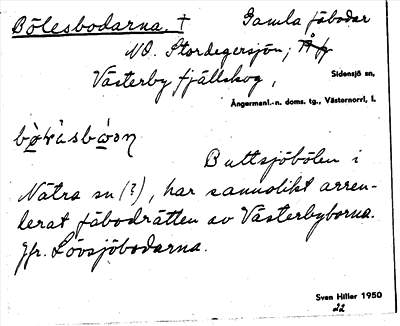 Bölesbodarna. † Gamla fäbodar
NO. Stordegersjön;
Västerby fjällskog, Sidensjö sn,
Ångermanl.-n. doms. tg., Västernorrl. l.
Buttsjöbölen i
Nätra sn (?), har sannolikt arren-
derat fäbodrätten av Västerbyborna.
Jfr. Lövsjöbodarna.
Sven Hiller 1950
22